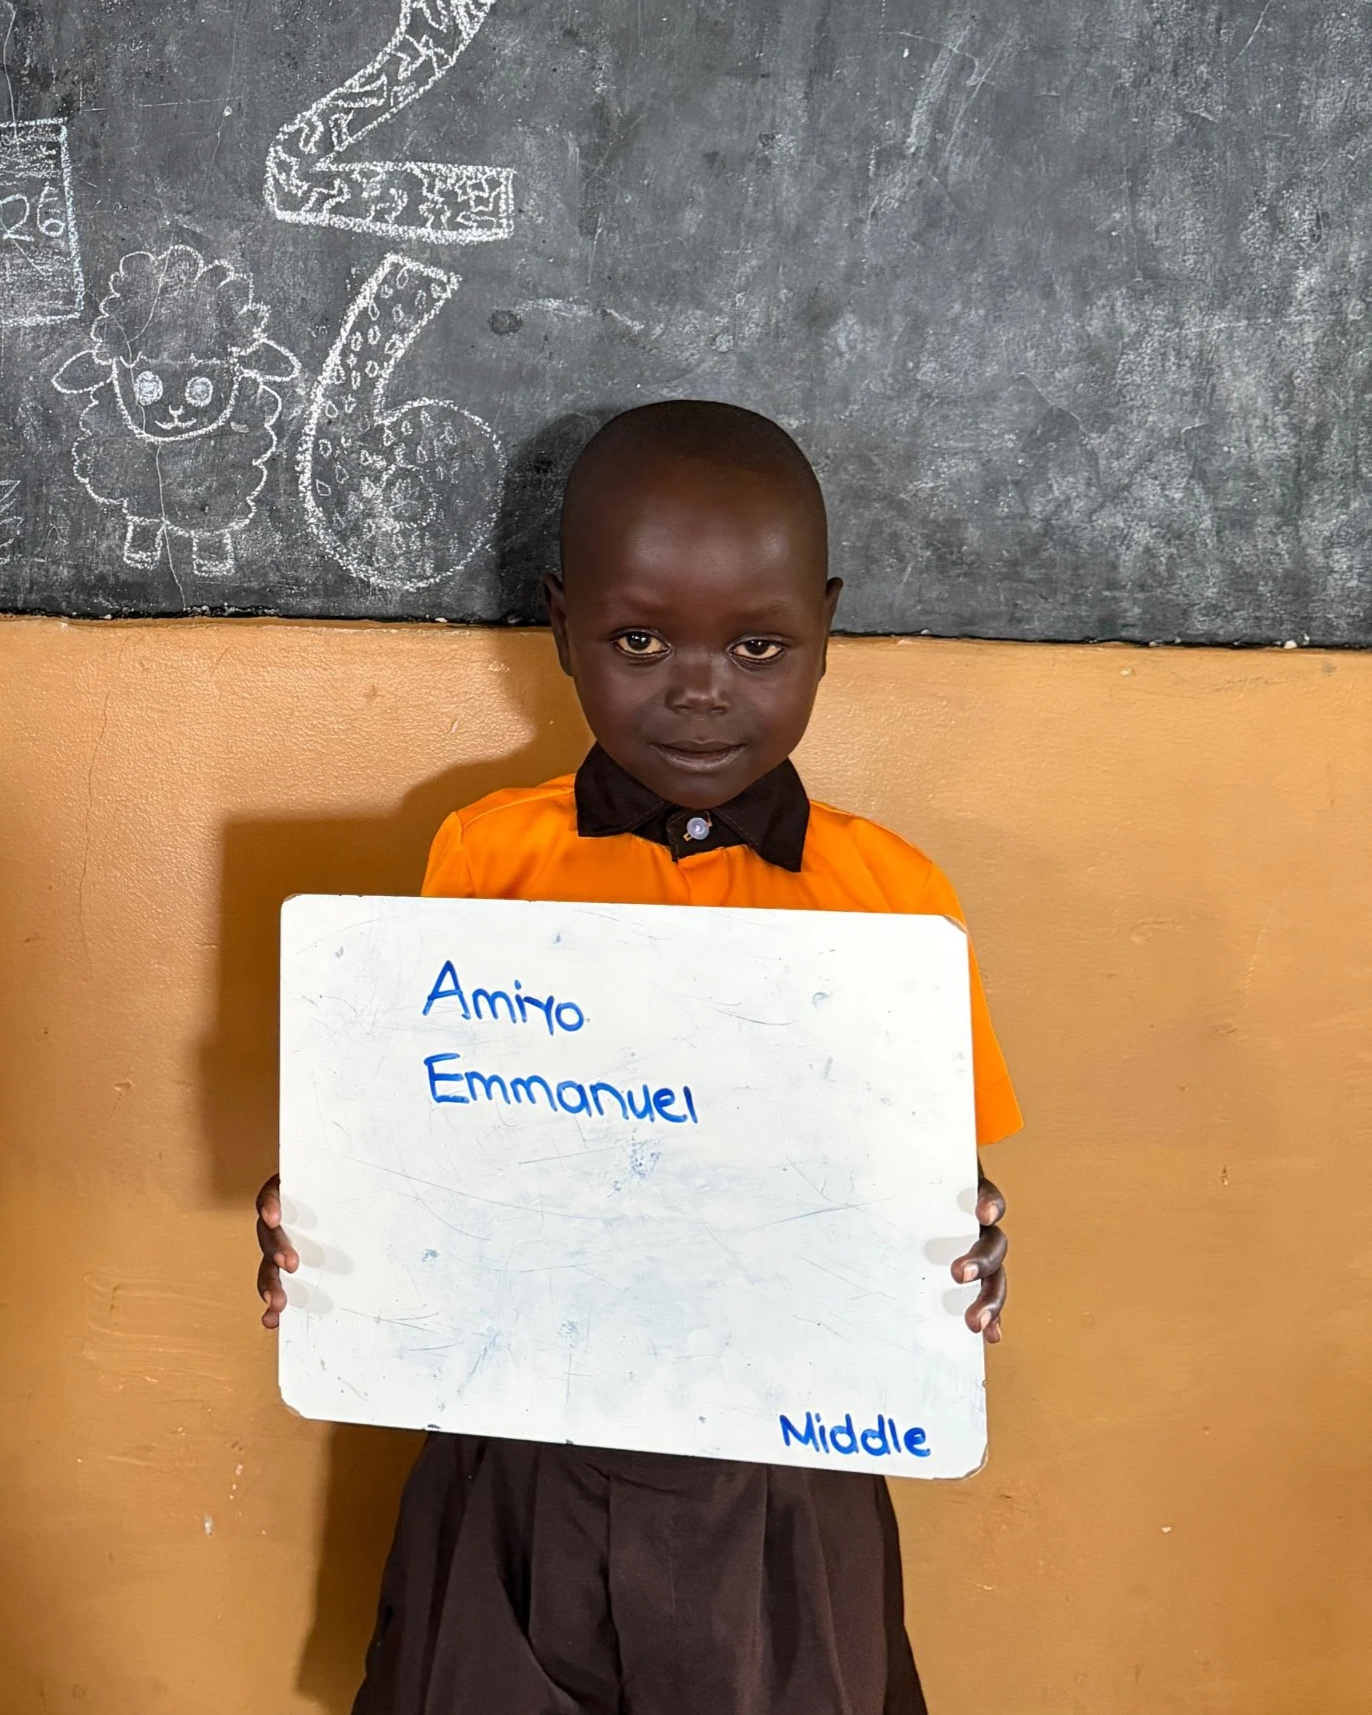 2
26
6
Amiyo
Emmanuel
Middle